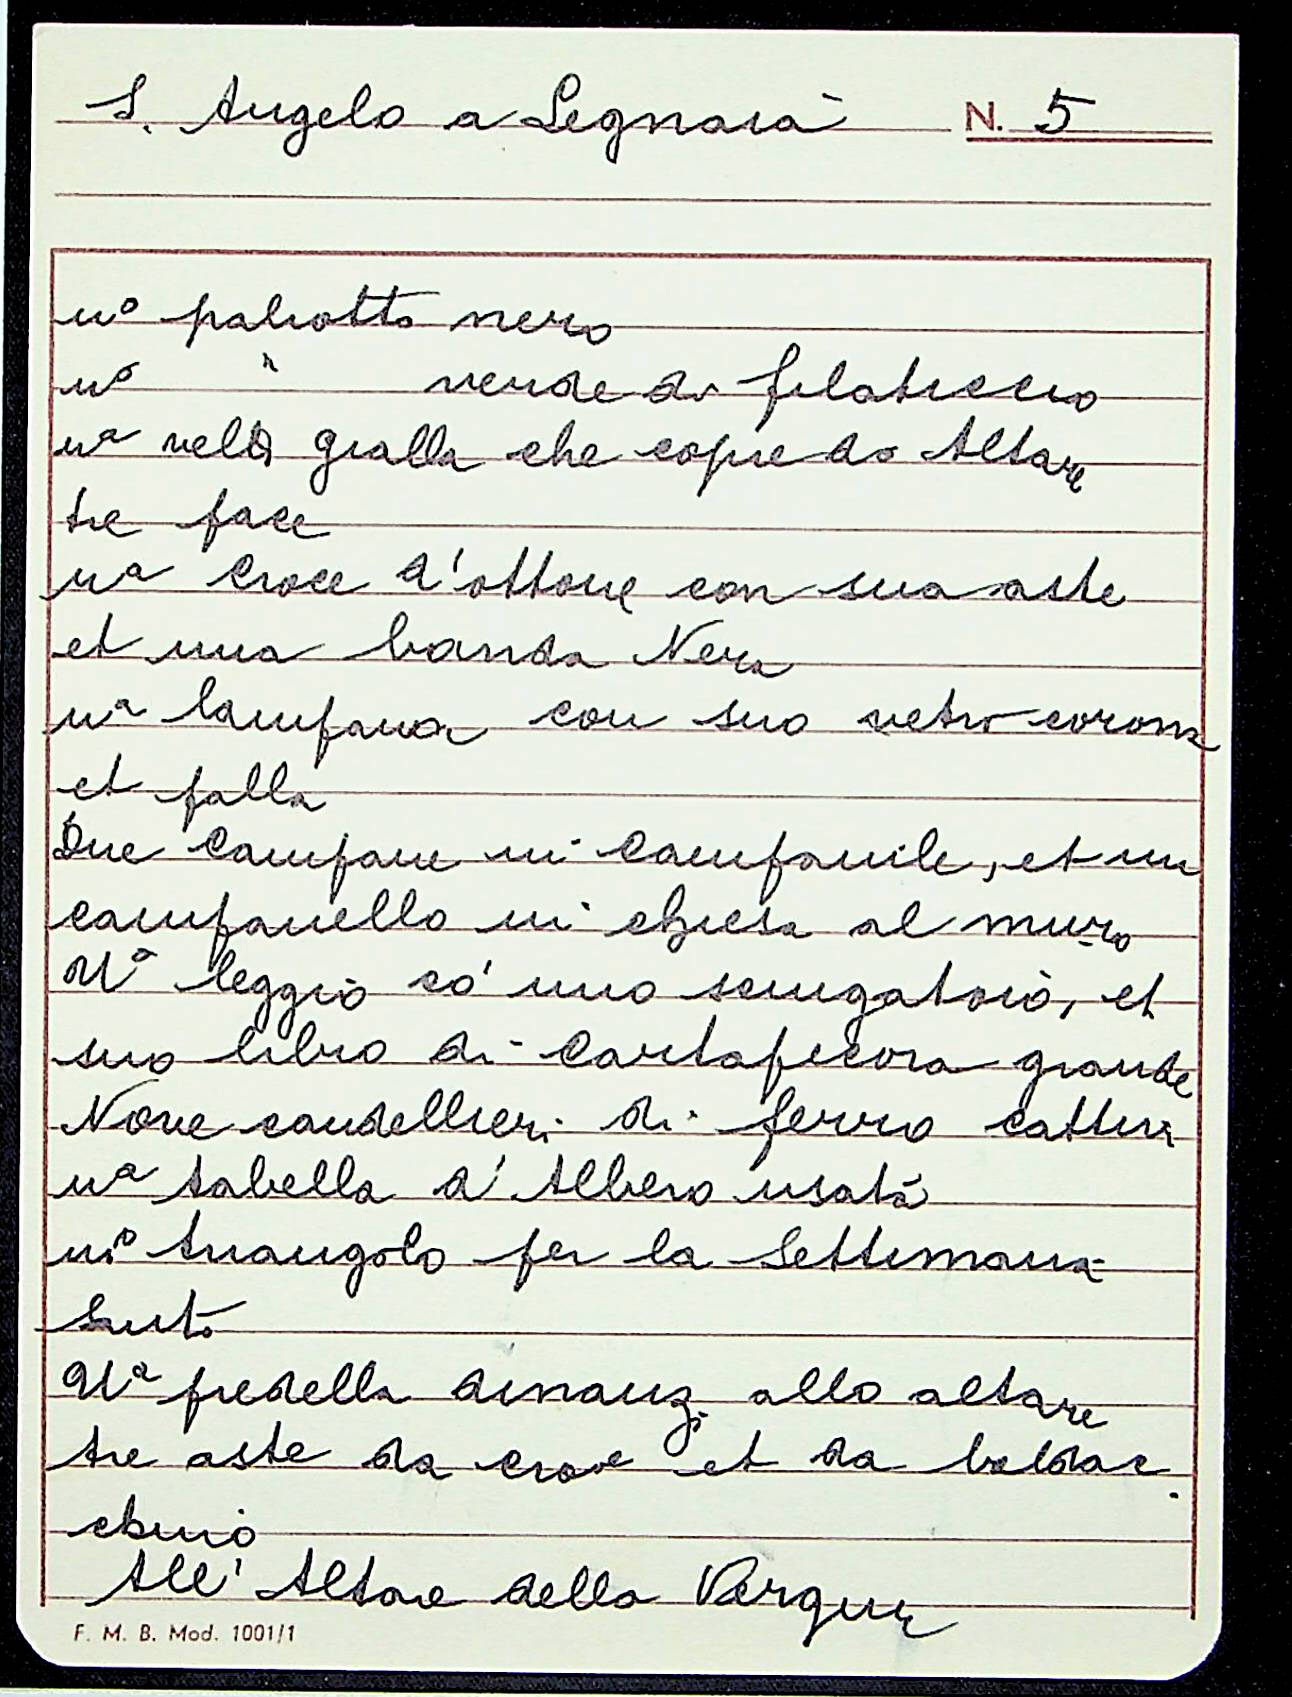 S. Angelo a Legnaia N. 5
uº paliotto nero
uº " verde di filaticcio
uª velta gialla che copre do Altare
tre face
uª Croce d'ottone con sua aste
et una banda Nera
uª lampana con suo vetro corona
et palla
Due Campane in Campanile, et un
campanello in chiesa al muro
Uª leggio co' uno sciugatoio, et
suo libro di Cartapecora grande
Nove candellieri di ferro cattivi
uª tabella d'Albero usata
uº triangolo per la Settimana
Santa
Uª predella dinanzi allo altare
tre aste da croce et da baldac
chino
All' Altare della Vergine
F. M. B. Mod. 1001/1